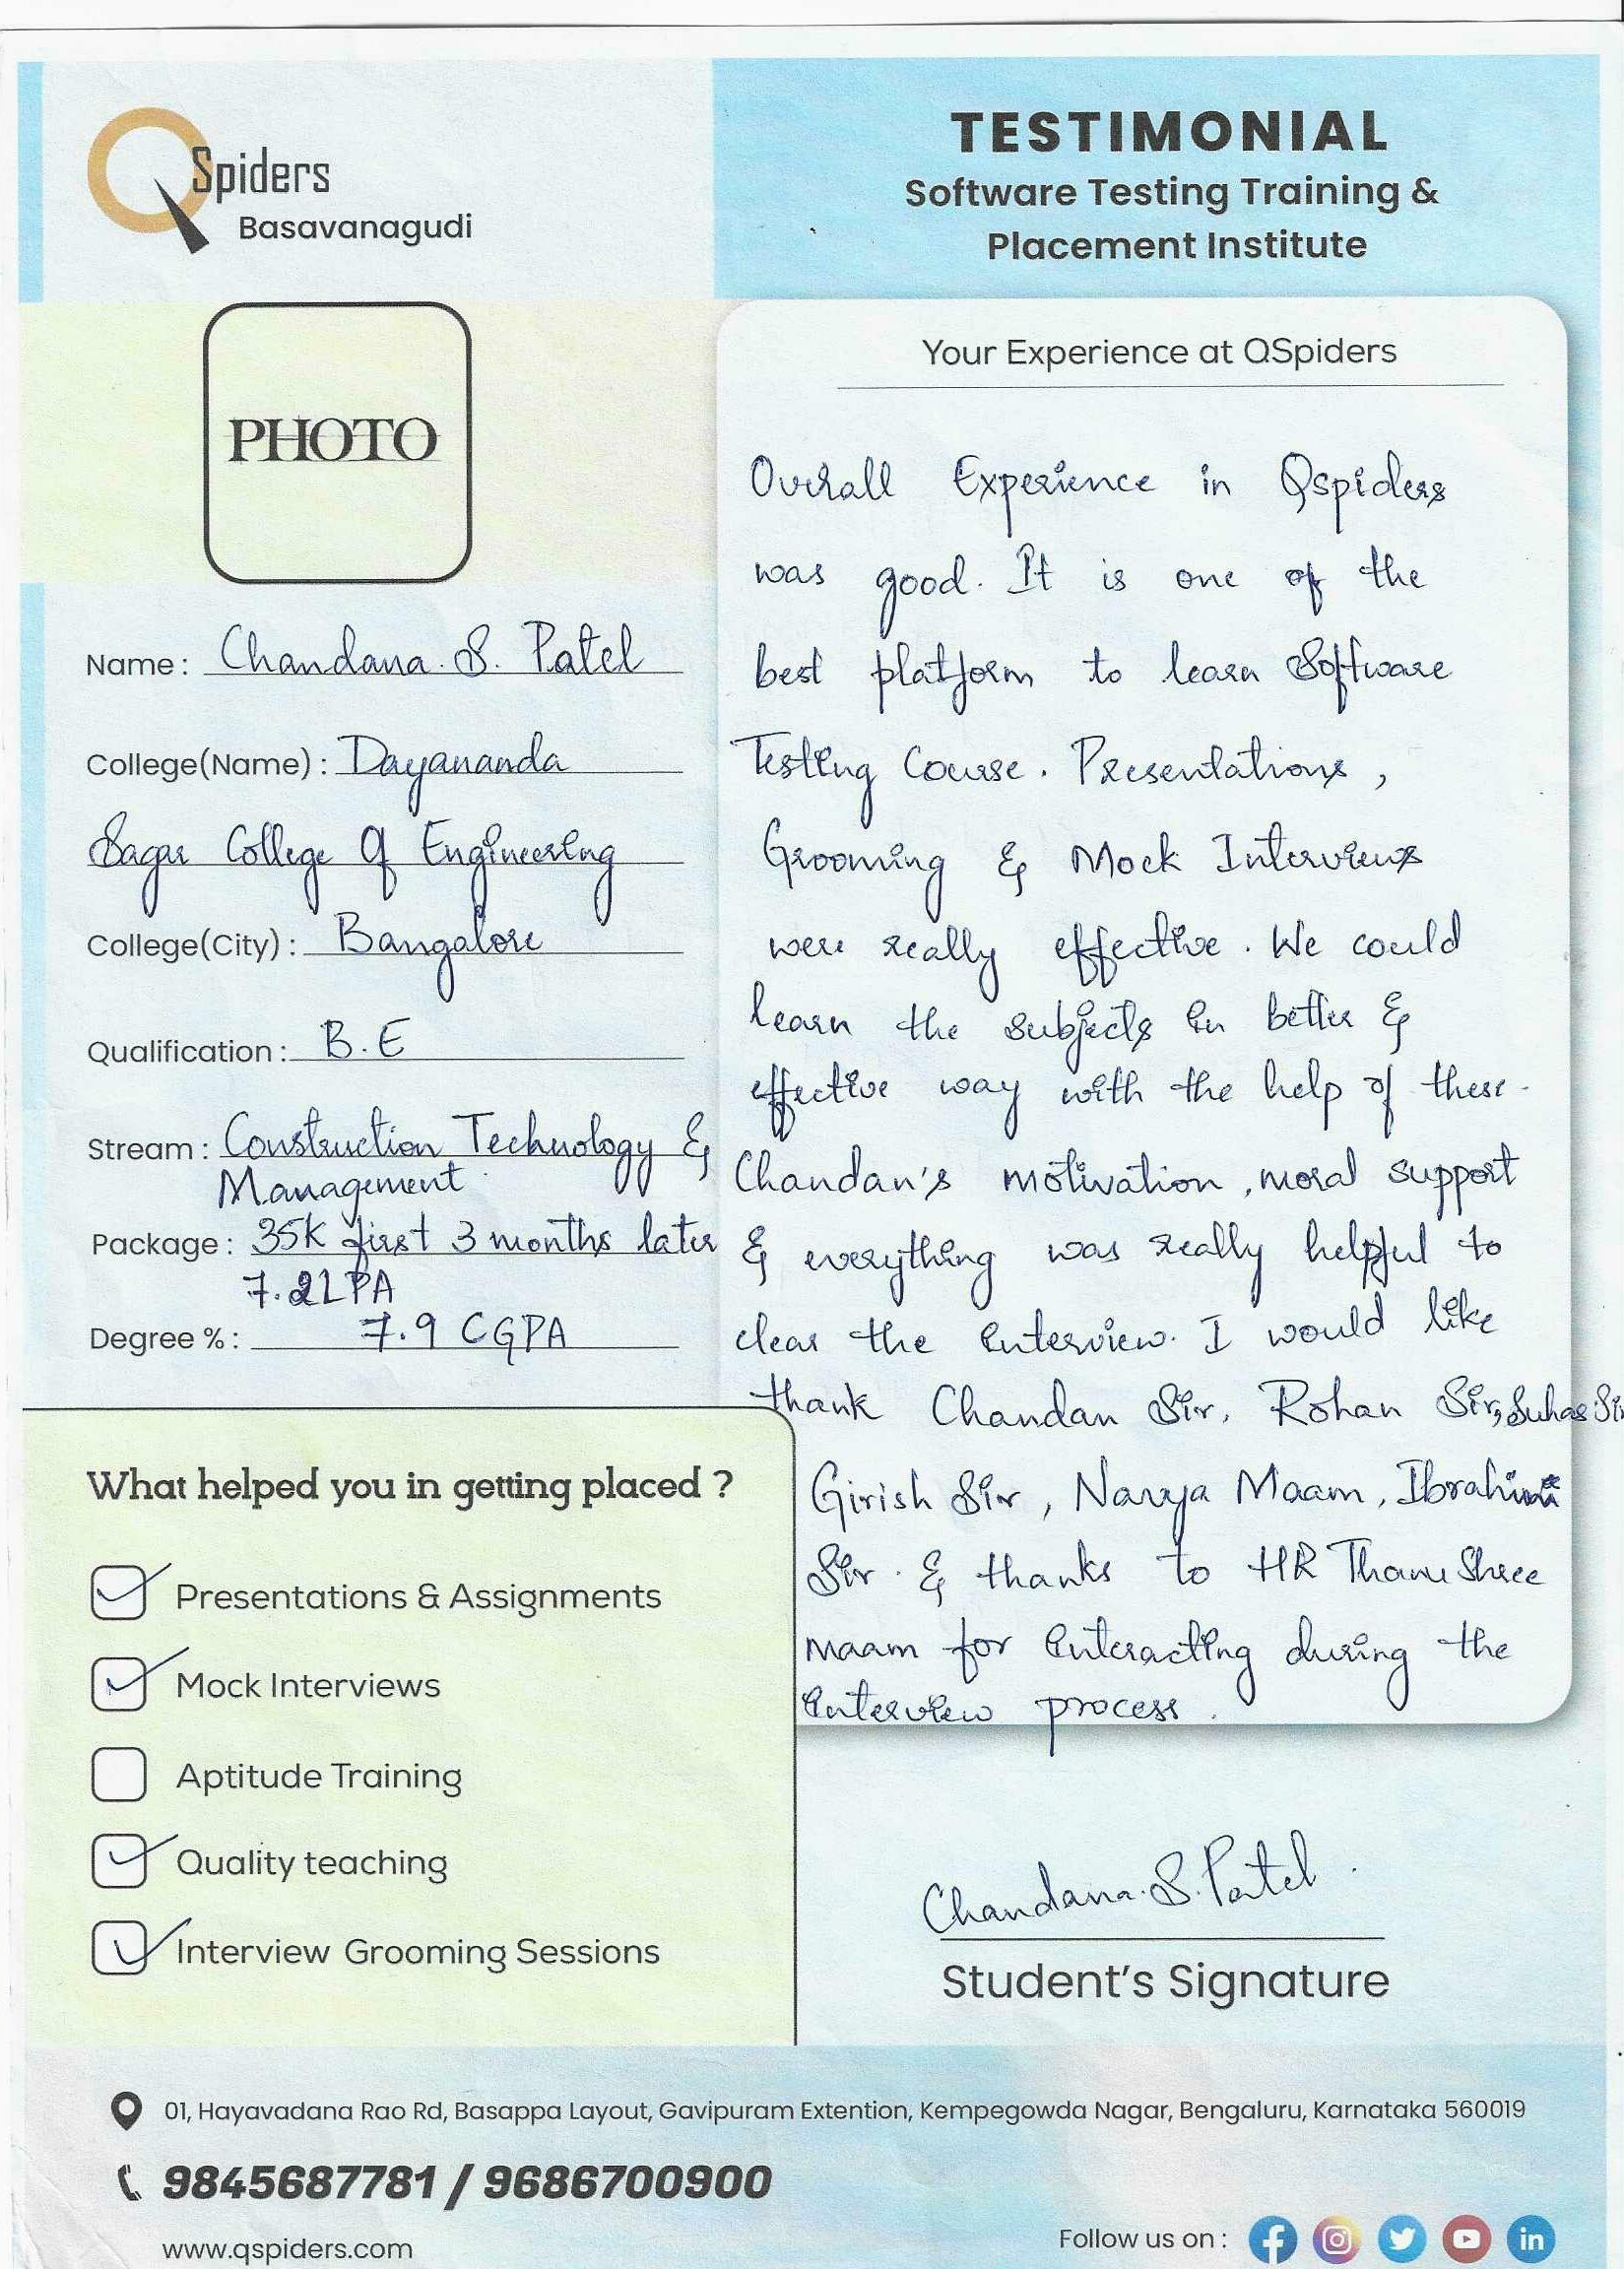 QSpiders
Basavanagudi
TESTIMONIAL
Software Testing Training &
Placement Institute
PHOTO
Name : Chandana. S. Patel
College(Name) : Dayananda
Sagar College Of Engineering
College(City) : Bangalore
Qualification : B.E
Stream : Construction Technology &
Management
Package : 35K first 3 months later
7.2LPA
Degree % : 7.9 CGPA
Your Experience at QSpiders
Overall Experience in Qspiders
was good. It is one of the
best platform to learn Software
Testing Course. Presentations,
Grooming & Mock Interviews
were really effective. We could
learn the subjects in better &
effective way with the help of these.
Chandan's motivation, moral support
& everything was really helpful to
clear the interview. I would like
thank Chandan Sir, Rohan Sir, Suhas Sir
Girish Sir, Navya Maam, Ibrahim
Sir. & thanks to HR Thanu Shree
maam for interacting during the
interview process.
What helped you in getting placed ?
Presentations & Assignments
Mock Interviews
Aptitude Training
Quality teaching
Interview Grooming Sessions
Chandana. S. Patel.
Student's Signature
01, Hayavadana Rao Rd, Basappa Layout, Gavipuram Extention, Kempegowda Nagar, Bengaluru, Karnataka 560019
9845687781 / 9686700900
www.qspiders.com
Follow us on :